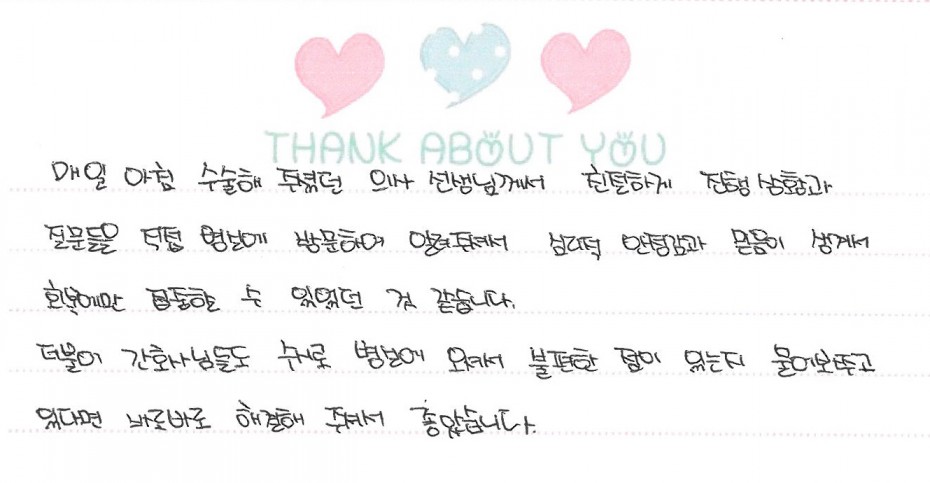 THANK ABOUT YOU
매일 아침 수술해 주셨던 의사 선생님께서 친절하게 진행 상황과
질문들을 직접 병실에 방문하여 알려주셔서 심리적 안정감과 믿음이 생겨서
회복에만 집중할 수 있었던 것 같습니다.
더불어 간호사님들도 수시로 병실에 오셔서 불편한 점이 있는지 물어봐주고
있다면 바로바로 해결해 주셔서 좋았습니다.